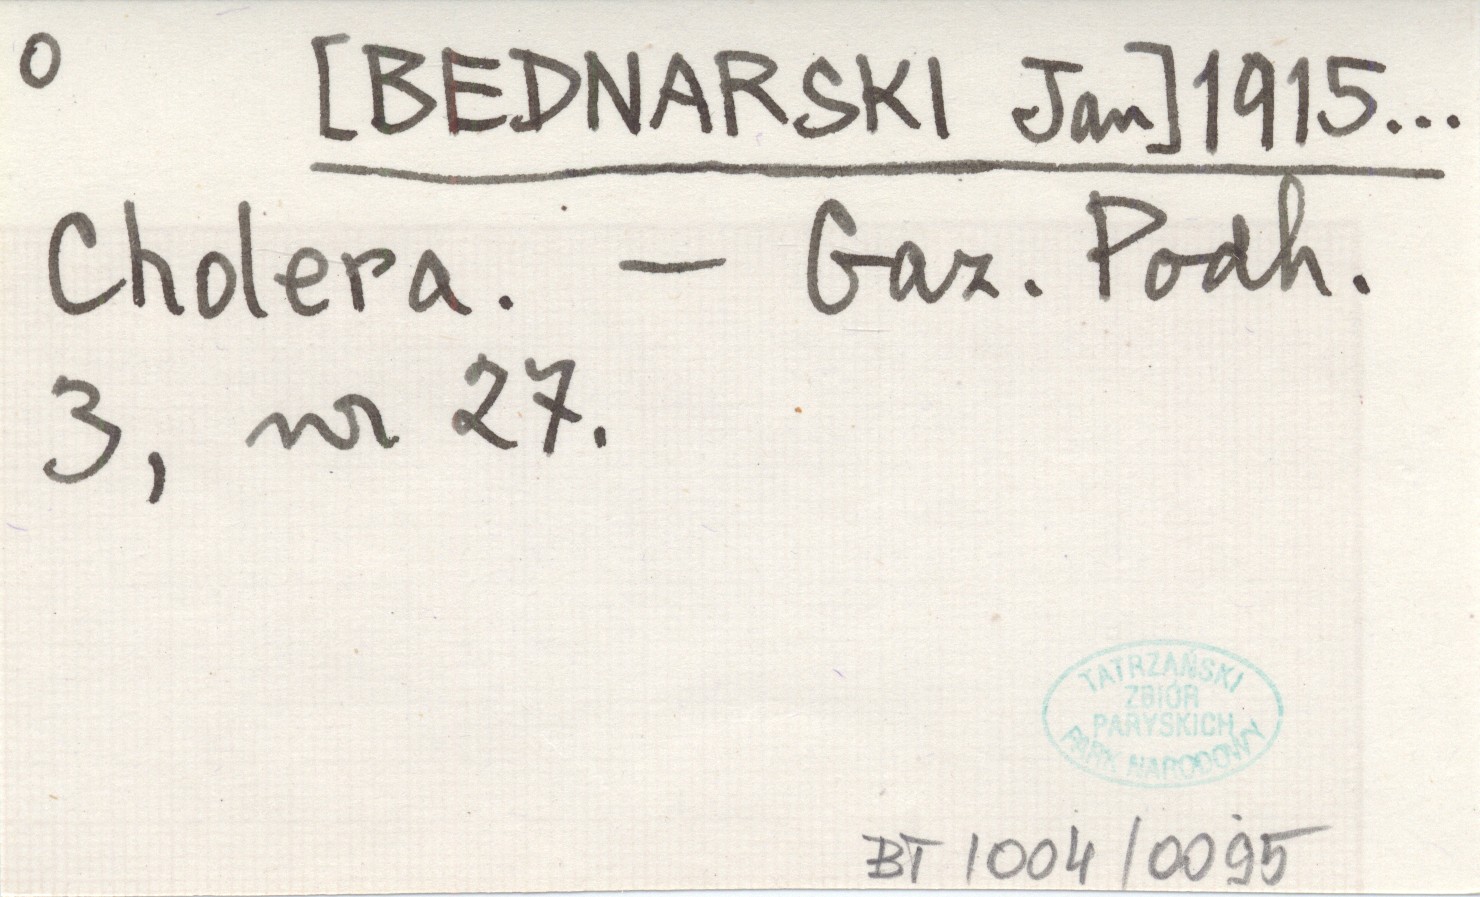 o [BEDNARSKI Jan] 1915...
Cholera. — Gaz. Podh.
3, nr 27.
TATRZAŃSKI
ZBIÓR
PARYSKICH
PARK NARODOWY
BT 1004/0095